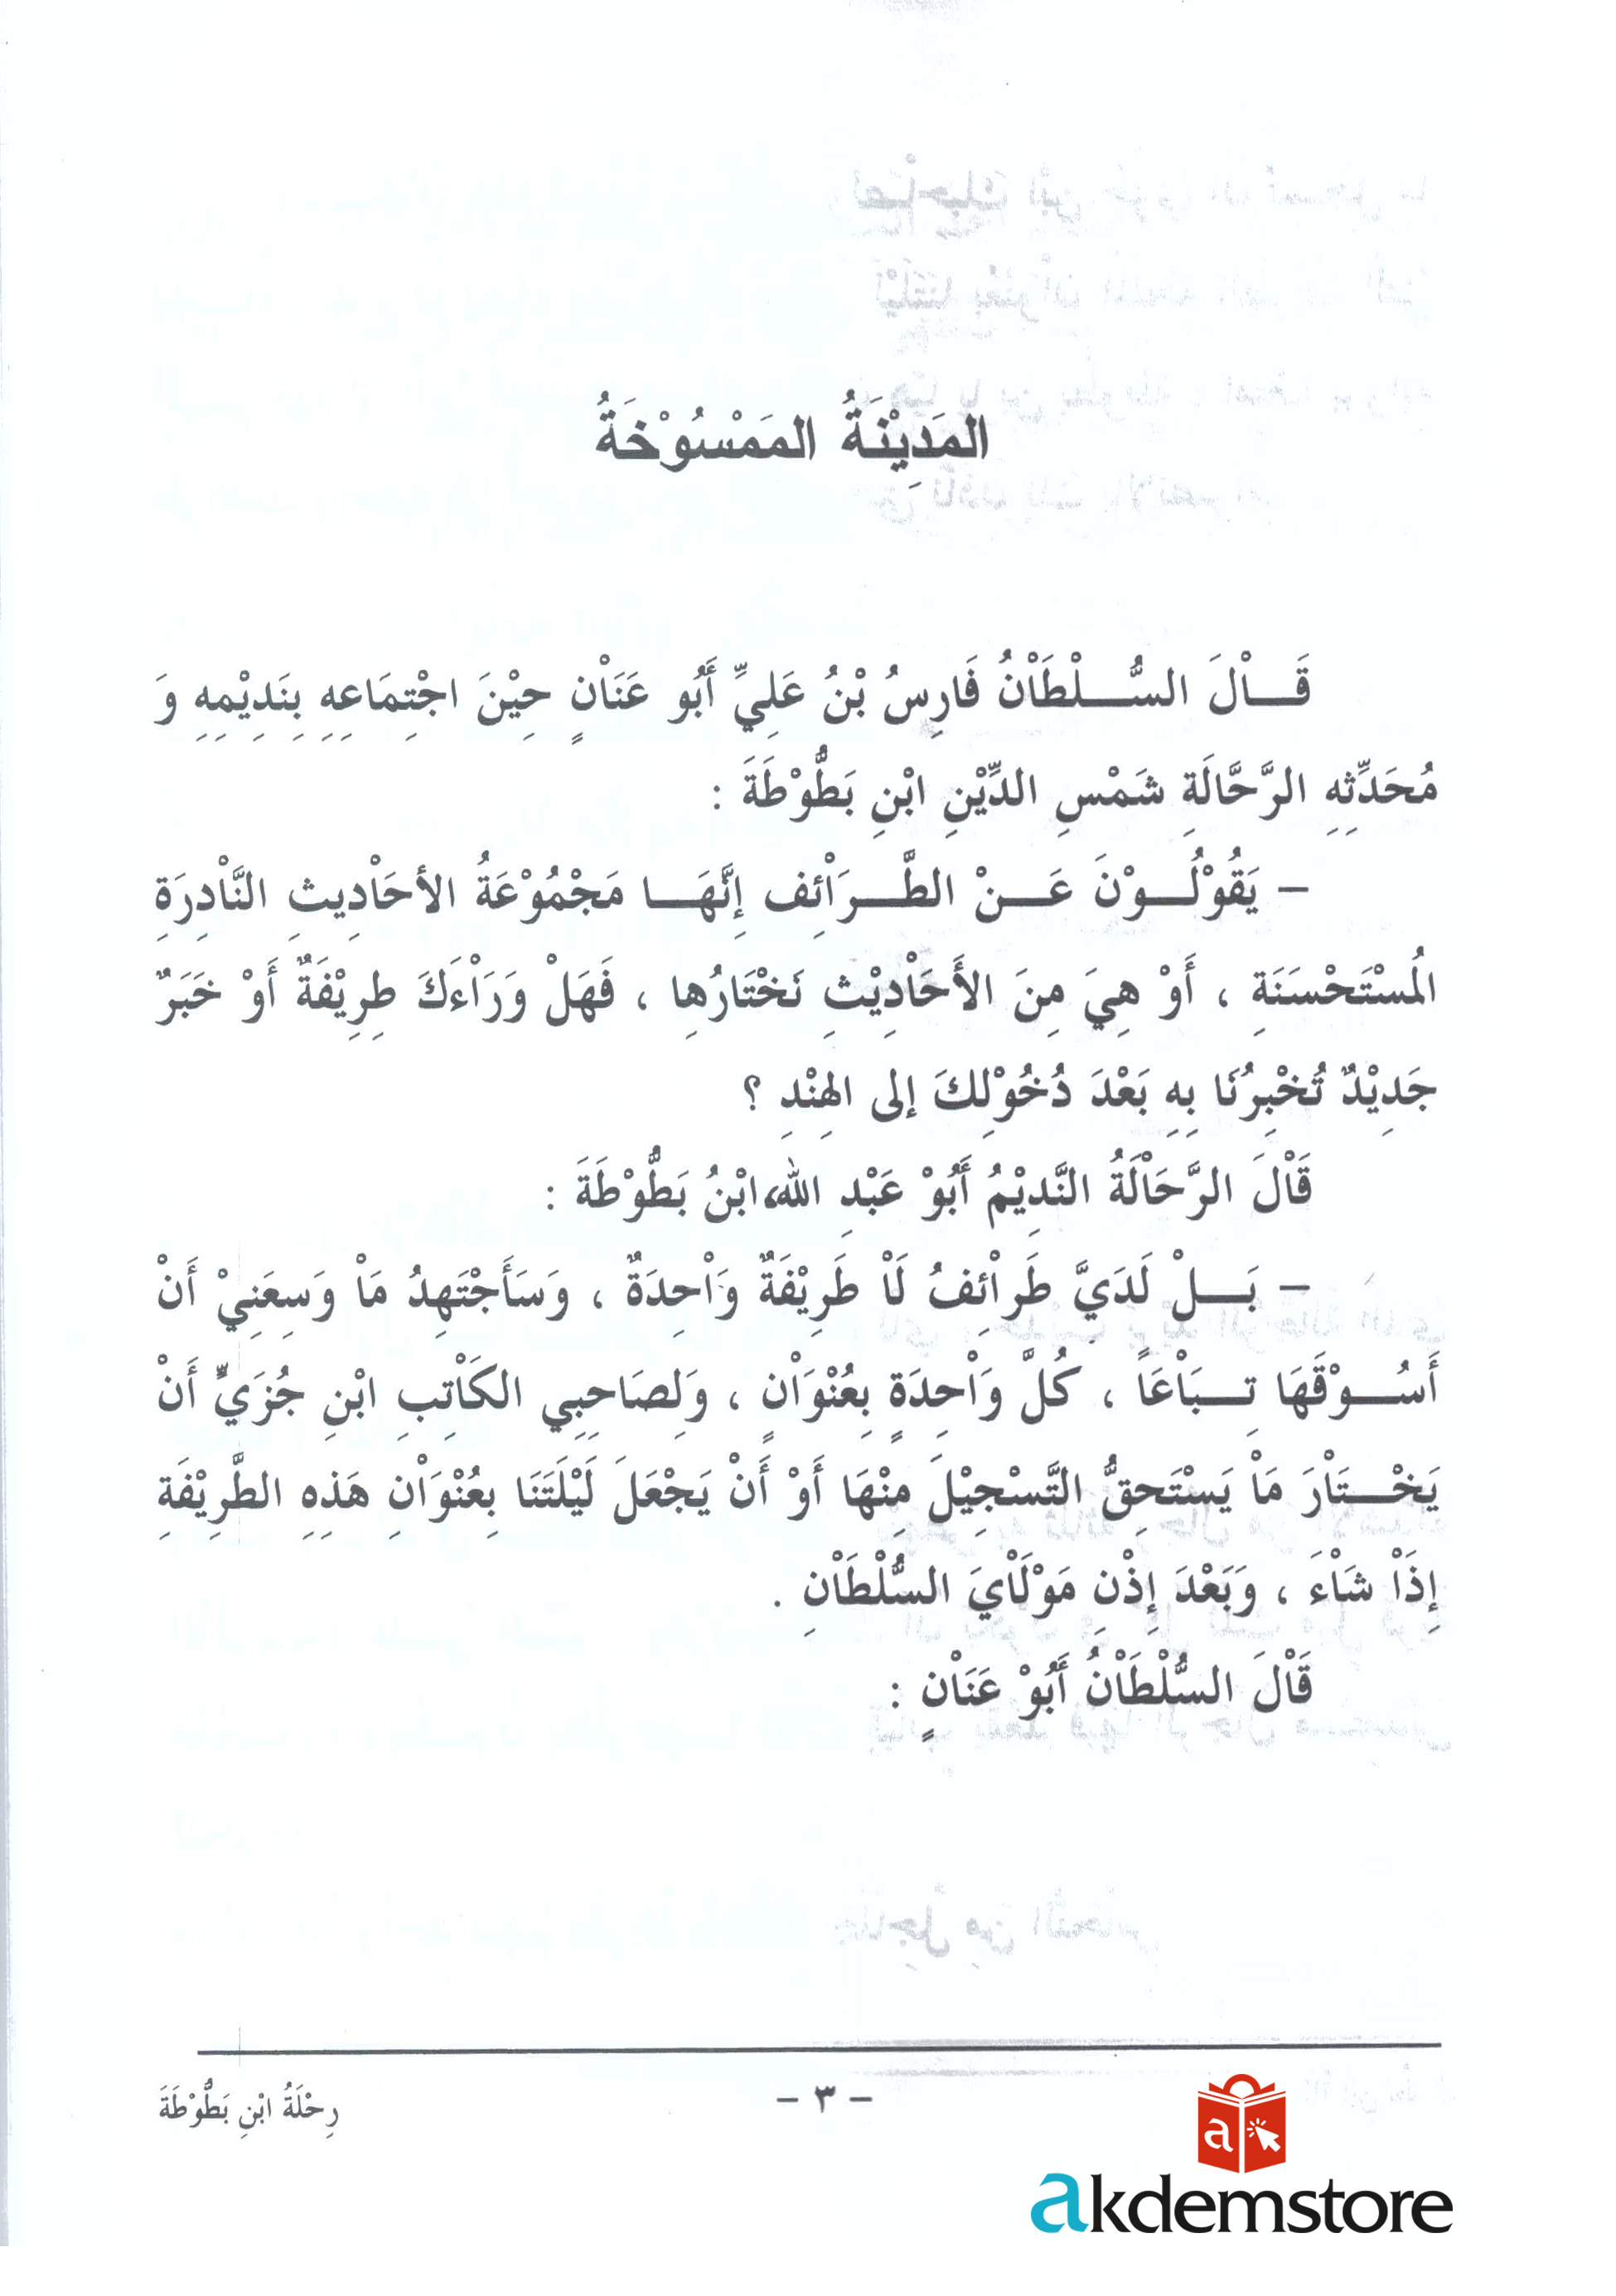 المَدِيْنَةُ المَمْسُوْخَةُ
قَـــاْلَ السُّـــلْطَاْنُ فَارِسُ بْنُ عَلِيِّ أَبُو عَنَاْنٍ حِيْنَ اجْتِمَاعِهِ بِنَدِيْمِهِ وَ
مُحَدِّثِهِ الرَّحَّالَةِ شَمْسِ الدِّيْنِ ابْنِ بَطُّوْطَةَ :
– يَقُوْلُـــوْنَ عَـــنْ الطَّـــرَاْئِف إِنَّهَـــا مَجْمُوْعَةُ الأحَاْدِيثِ النَّاْدِرَةِ
المُسْتَحْسَنَةِ ، أَوْ هِيَ مِنَ الأَحَاْدِيْثِ نَخْتَارُهِا ، فَهَلْ وَرَاْءَكَ طِرِيْفَةٌ أَوْ خَبَرٌ
جَدِيْدٌ تُخْبِرُنَا بِهِ بَعْدَ دُخُوْلِكَ إلى الهِنْدِ ؟
قَاْلَ الرَّحَاْلَةُ النَّدِيْمُ أَبُوْ عَبْدِ الله، ابْنُ بَطُّوْطَةَ :
– بَـــلْ لَدَيَّ طَرَاْئِفُ لَاْ طَرِيْفَةٌ وَاْحِدَةٌ ، وَسَأَجْتَهِدُ مَاْ وَسِعَنِيْ أَنْ
أَسُـــوْقَهَا تِـــبَاْعَاً ، كُلَّ وَاْحِدَةٍ بِعُنْوَاْنٍ ، وَلِصَاحِبِي الكَاْتِبِ ابْنِ جُزَيٍّ أَنْ
يَخْـــتَاْرَ مَاْ يَسْتَحِقُّ التَّسْجِيْلَ مِنْهَا أَوْ أَنْ يَجْعَلَ لَيْلَتَنَا بِعُنْوَاْنِ هَذِهِ الطَّرِيْفَةِ
إِذَاْ شَاْءَ ، وَبَعْدَ إِذْنِ مَوْلَاْيَ السُّلْطَاْنِ .
قَاْلَ السُّلْطَاْنُ أَبُوْ عَنَاْنٍ :
– ٣ –
رِحْلَةُ ابْنِ بَطُّوْطَةَ
a
akdemstore